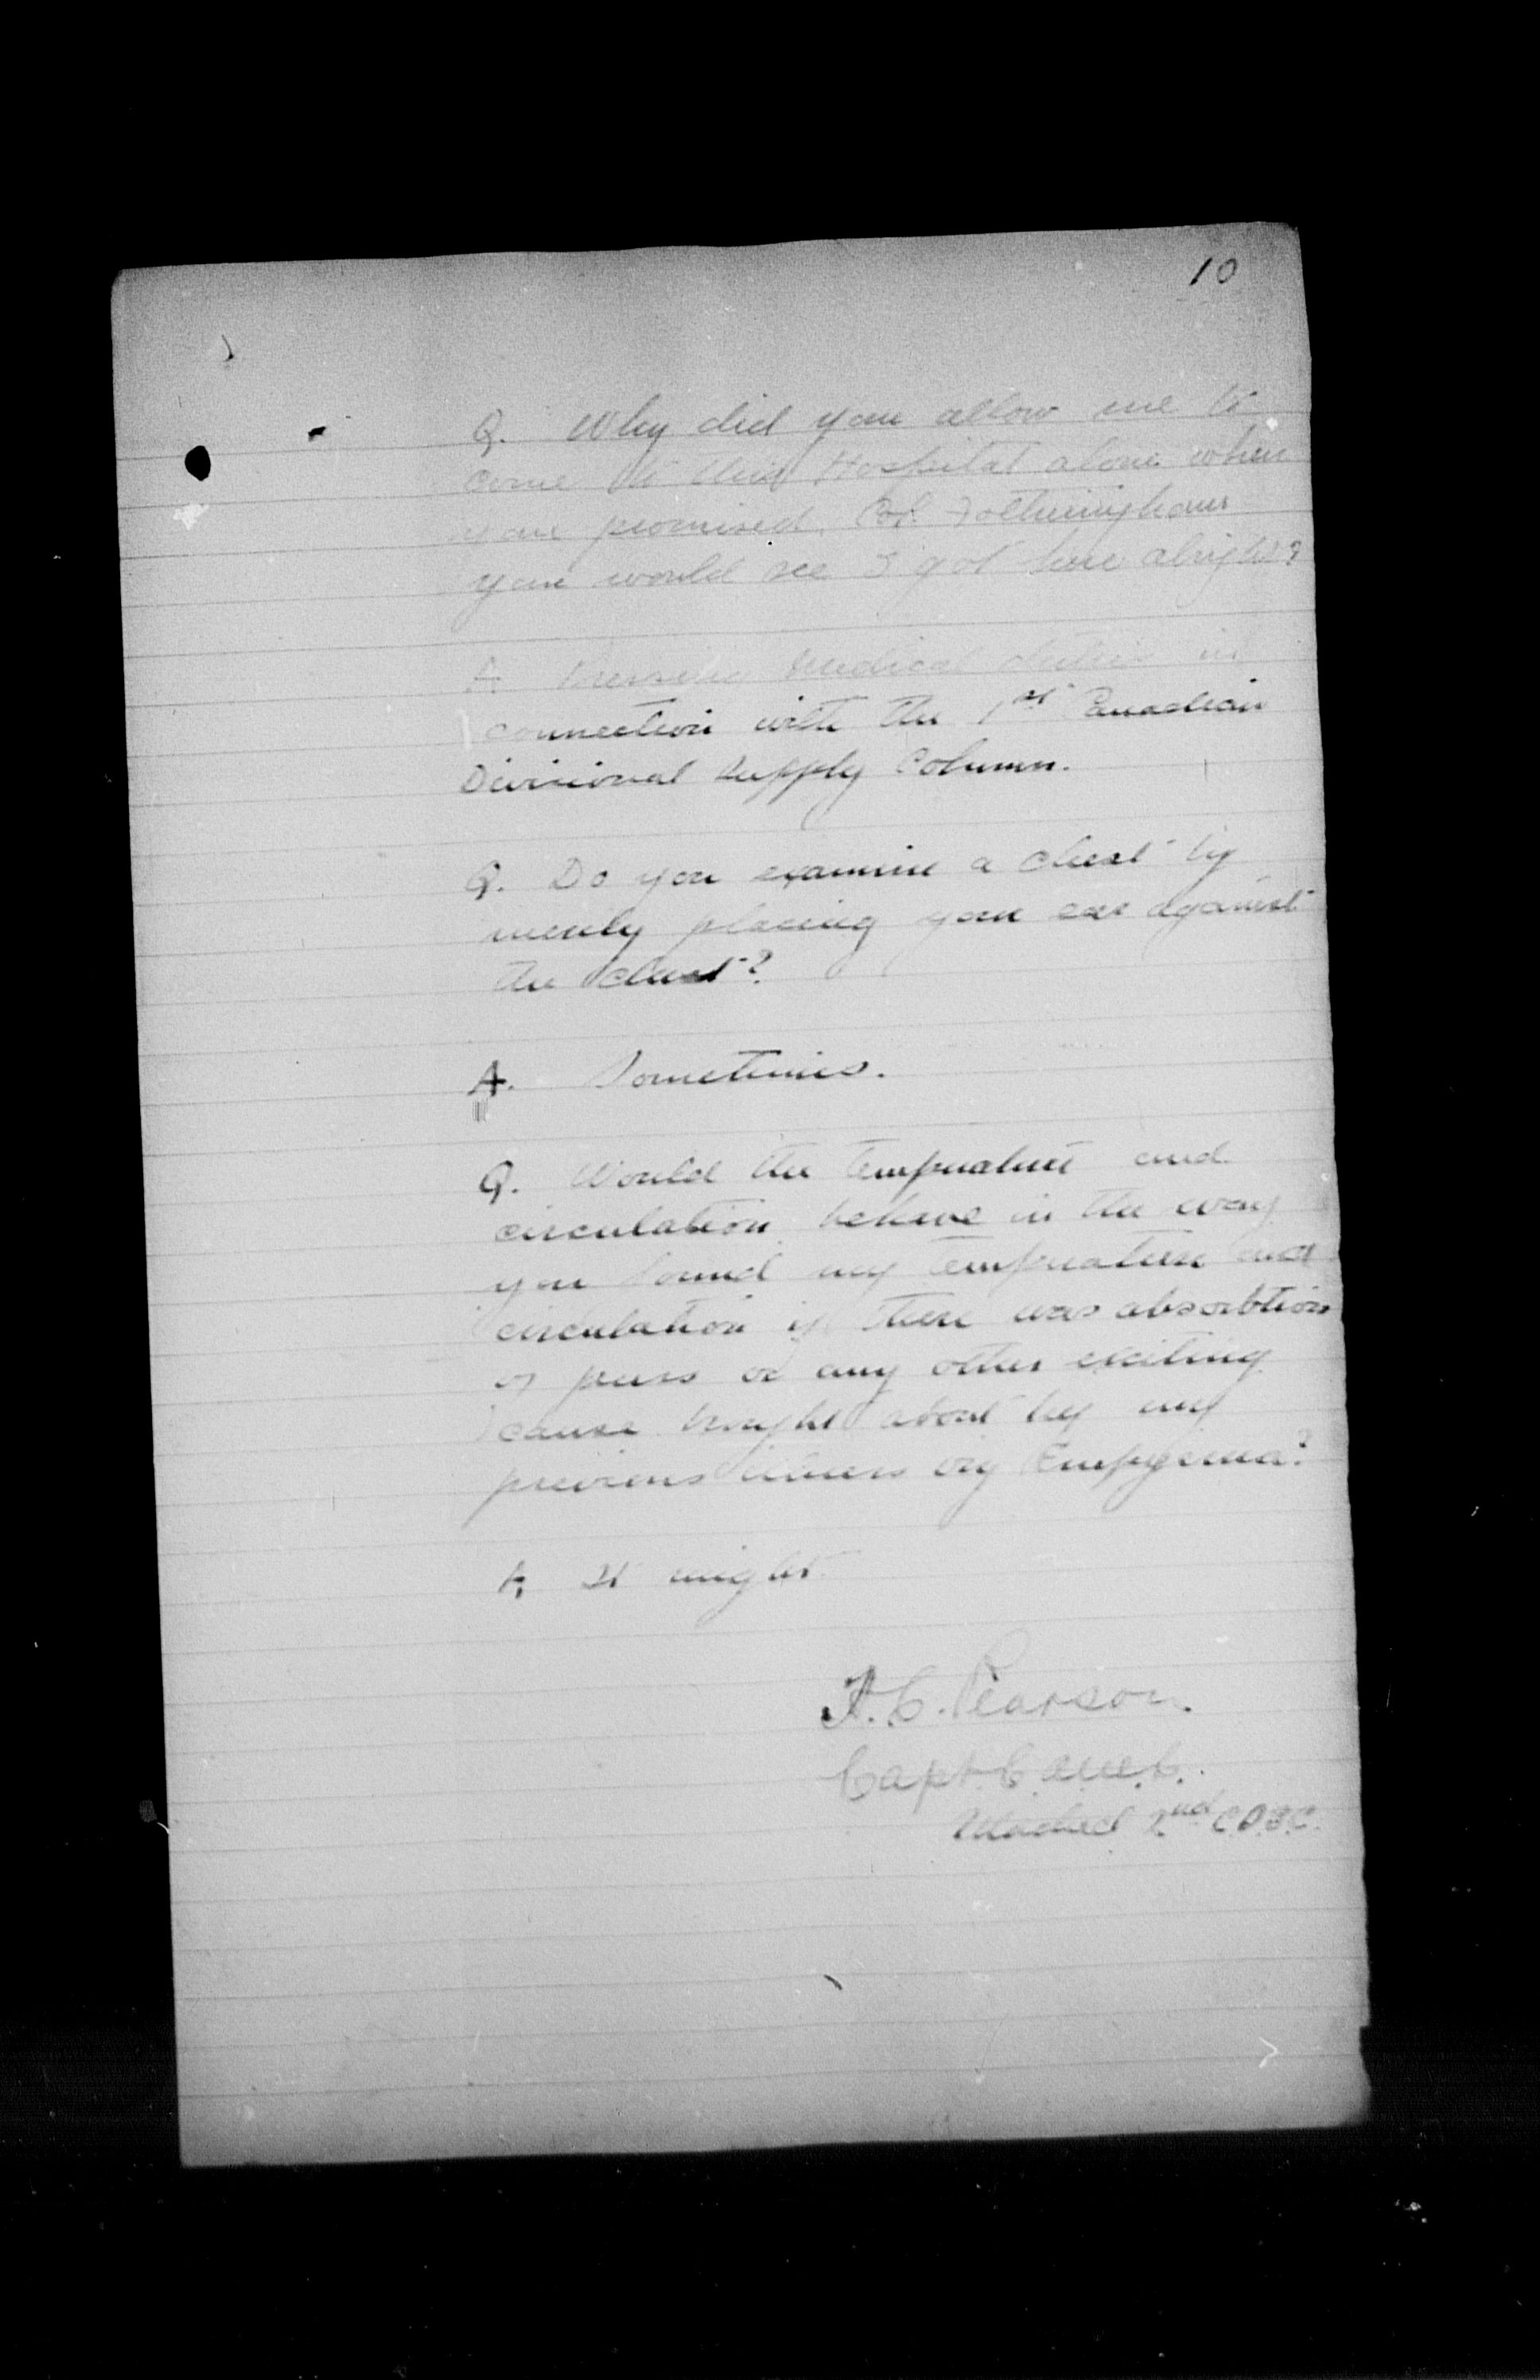 10
Q. Why did you allow me to
come to this Hospital alone when
you promised Col. Fotheringham
you would see I got here alright?
A. Pressing Medical duties in
connection with the 1st Canadian
Divisional Supply Column.
Q. Do you examine a chest by
merely placing your ear against
the chest?
A. Sometimes.
Q. Would the temperature and
circulation behave in the way
you found my temperature and
circulation if there was absorbtion
of puss or any other exciting
cause brought about by my
previous illness viz Empyema?
A. It might
F.C. Pearson.
Capt. C.A.M.C.
Attached 2nd C.D.S.C.